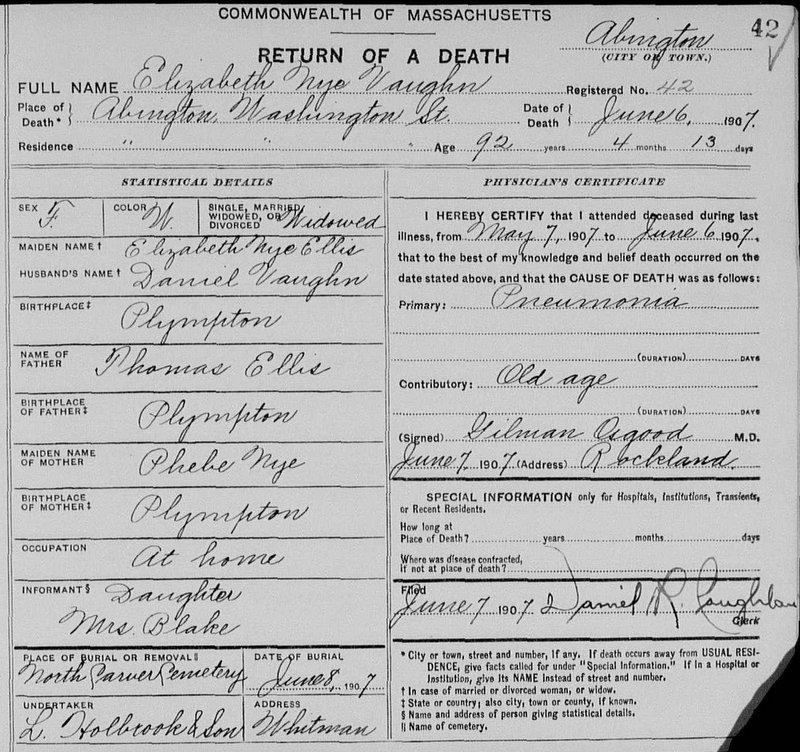 COMMONWEALTH OF MASSACHUSETTS
42
RETURN OF A DEATH
Abington
(CITY OR TOWN.)
FULL NAME Elizabeth Nye Vaughn Registered No. 42
Place of Death* Abington, Washington St. Date of Death June 6, 1907.
Residence " " " Age 92 years 4 months 13 days
STATISTICAL DETAILS
SEX F. COLOR W. SINGLE, MARRIED, WIDOWED, OR DIVORCED Widowed
MAIDEN NAME† Elizabeth Nye Ellis
HUSBAND'S NAME† Daniel Vaughn
BIRTHPLACE‡
Plympton
NAME OF FATHER Thomas Ellis
BIRTHPLACE OF FATHER‡ Plympton
MAIDEN NAME OF MOTHER Phebe Nye
BIRTHPLACE OF MOTHER‡ Plympton
OCCUPATION At home
INFORMANT§ Daughter
Mrs. Blake
PLACE OF BURIAL OR REMOVAL‖ DATE OF BURIAL
North Carver Cemetery June 8, 1907
UNDERTAKER ADDRESS
L. Holbrook & Son Whitman
PHYSICIAN'S CERTIFICATE
I HEREBY CERTIFY that I attended deceased during last
illness, from May 7, 1907 to June 6 1907,
that to the best of my knowledge and belief death occurred on the
date stated above, and that the CAUSE OF DEATH was as follows:
Primary: Pneumonia
(DURATION) DAYS
Contributory: Old age
(DURATION) DAYS
(Signed) Gilman Osgood M.D.
June 7. 1907 (Address) Rockland.
SPECIAL INFORMATION only for Hospitals, Institutions, Transients,
or Recent Residents.
How long at
Place of Death? years months days
Where was disease contracted,
if not at place of death?
Filed
June 7 1907 Daniel R. Coughlan
Clerk
* City or town, street and number, if any. If death occurs away from USUAL RESI-
DENCE, give facts called for under "Special Information." If in a Hospital or
Institution, give its NAME instead of street and number.
† In case of married or divorced woman, or widow.
‡ State or country; also city, town or county, if known.
§ Name and address of person giving statistical details.
‖ Name of cemetery.